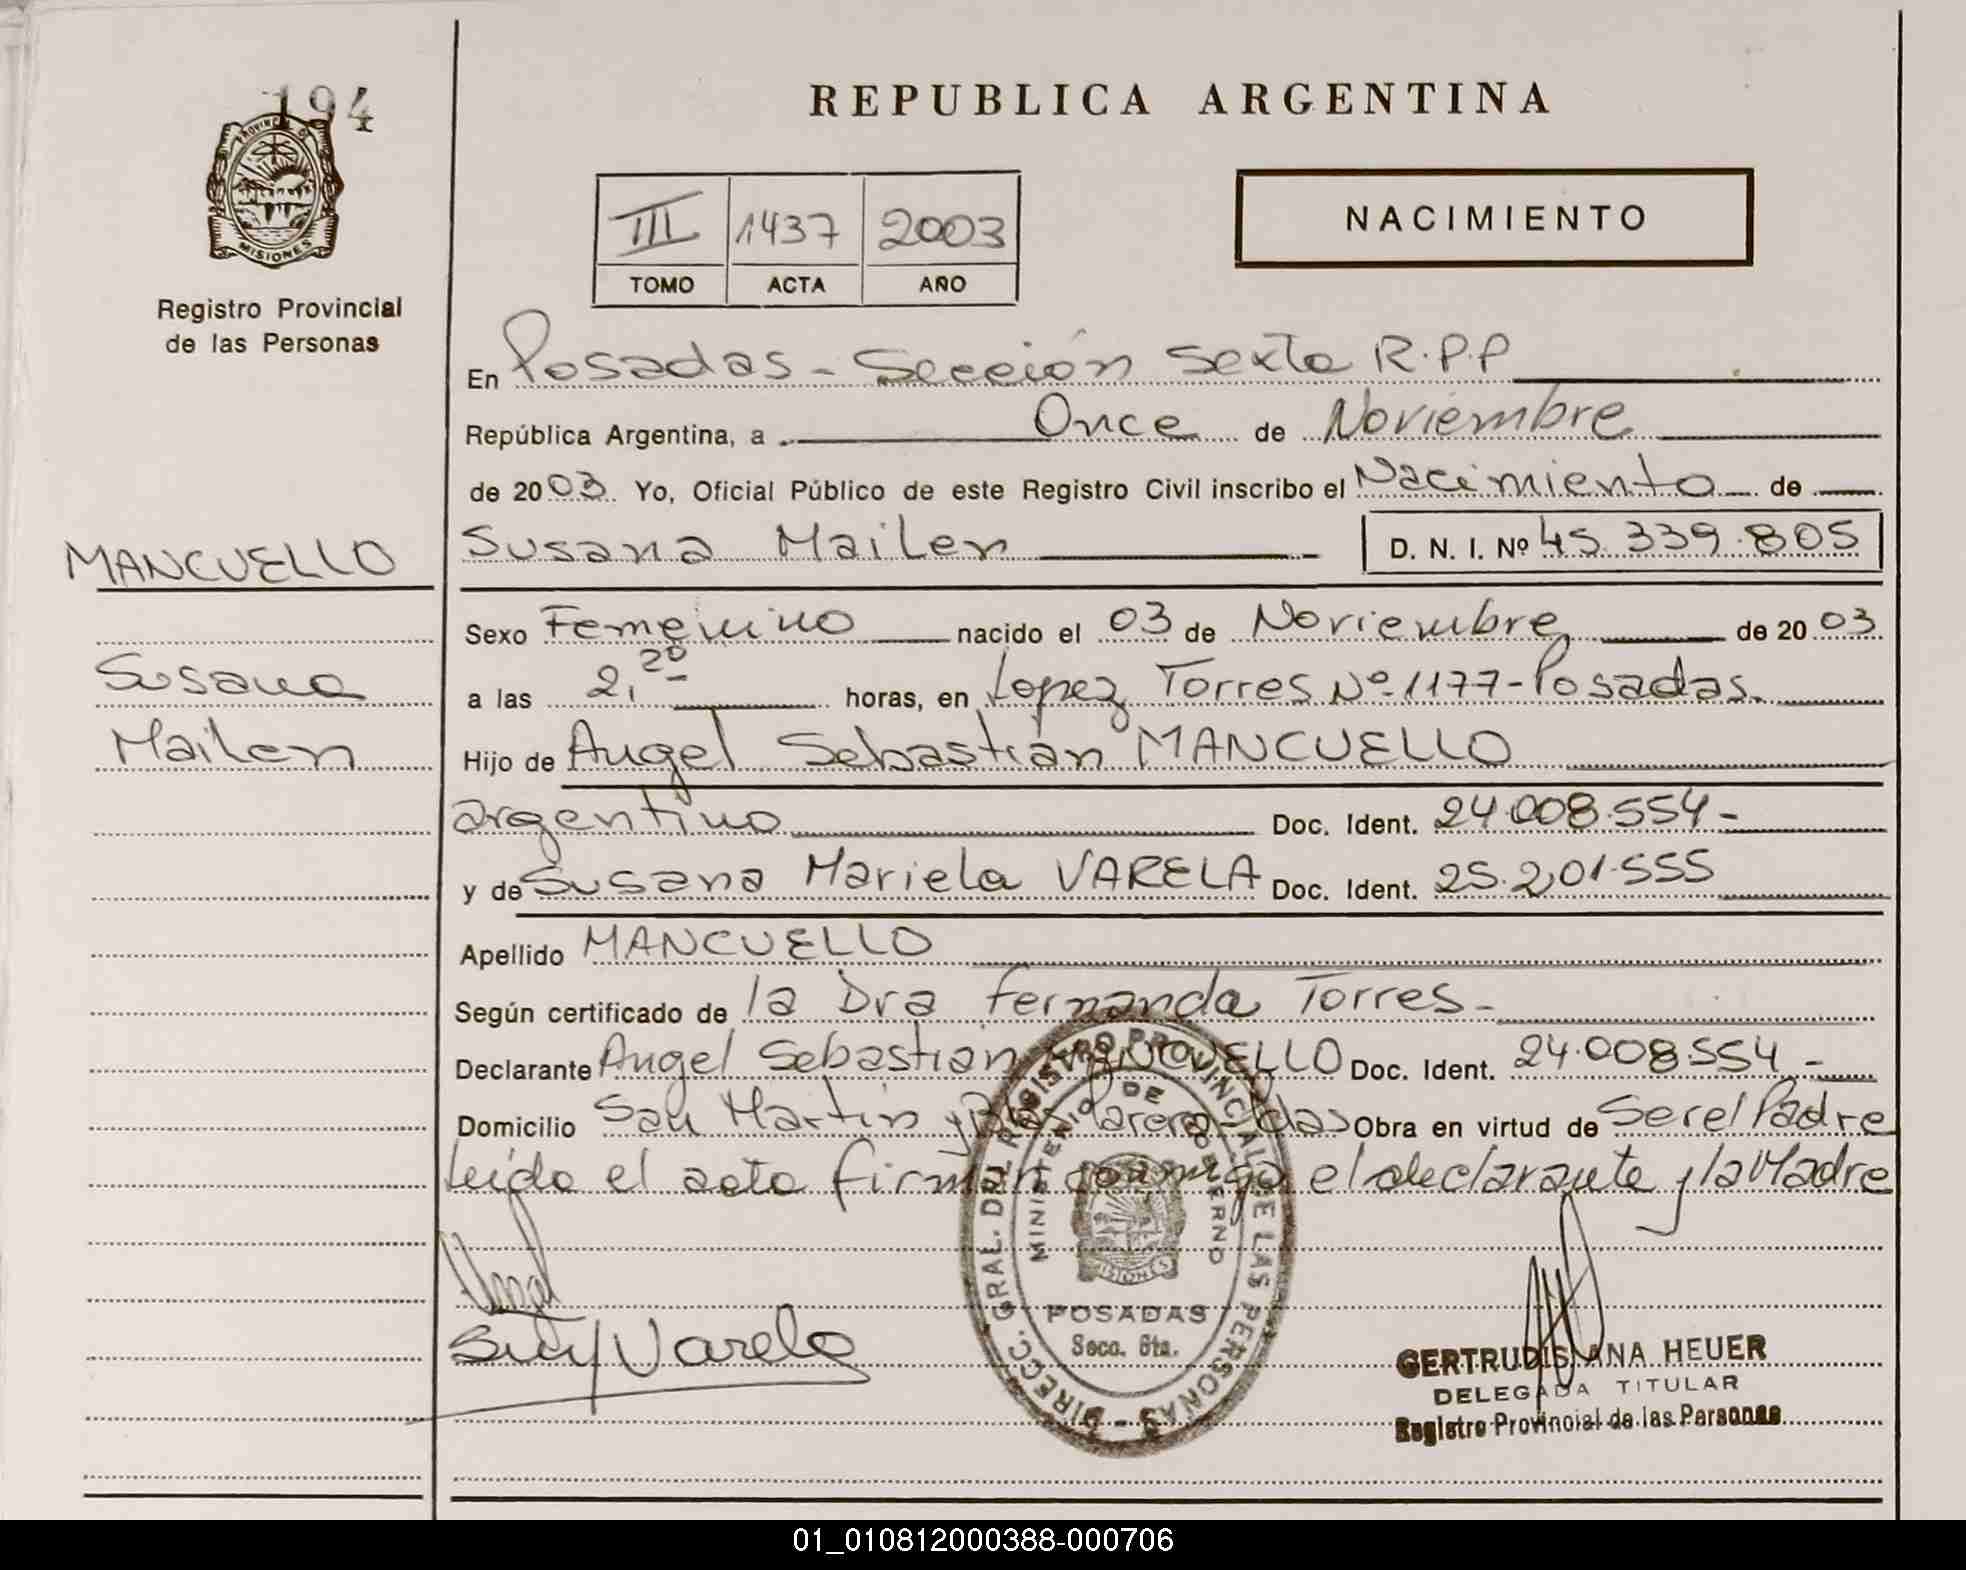 194
PROVINCIA DE
MISIONES
Registro Provincial
de las Personas
MANCUELLO
Susana
Mailen
REPUBLICA ARGENTINA
III 1437 2003
TOMO ACTA AÑO
NACIMIENTO
En Posadas - Sección Sexta R.P.P
República Argentina, a Once de Noviembre
de 2003. Yo, Oficial Público de este Registro Civil inscribo el Nacimiento de
Susana Mailen D. N. I. Nº 45.339.805
Sexo Femenino nacido el 03 de Noviembre de 2003
a las 2,20 horas, en Lopez Torres Nº 1177-Posadas.
Hijo de Angel Sebastián MANCUELLO
argentino Doc. Ident. 24.008.554-
y de Susana Mariela VARELA Doc. Ident. 25.201.555
Apellido MANCUELLO
Según certificado de la Dra Fernanda Torres-
Declarante Angel Sebastian MANCUELLO Doc. Ident. 24.008.554-
Domicilio San Martín y Parera Obra en virtud de Ser el Padre
Leída el acta firman conmigo el declarante y la Madre
DIRECC. GRAL. DEL REGISTRO PROVINCIAL DE LAS PERSONAS
MINISTERIO DE GOBIERNO
MISIONES
POSADAS
Secc. 6ta.
Susy Varela
GERTRUDIS ANA HEUER
DELEGADA TITULAR
Registro Provincial de las Personas
01_010812000388-000706